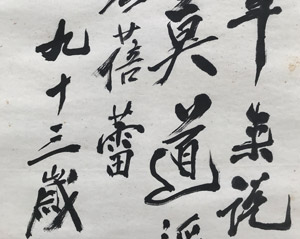 年说
莫道
蓓蕾
九十三歲